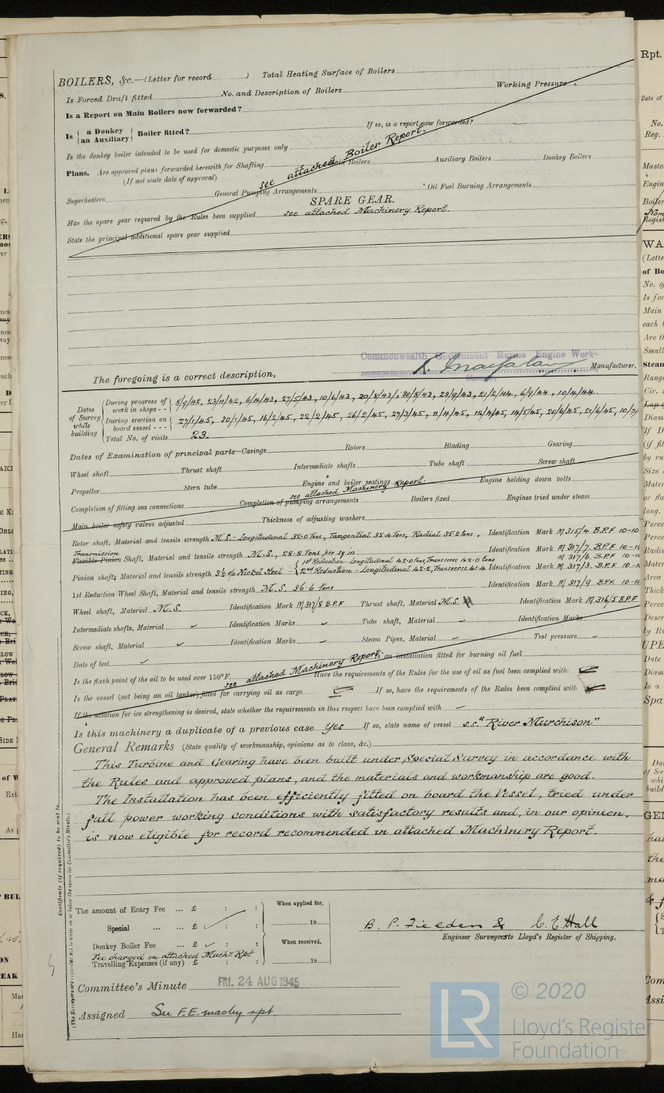 BOILERS, &c.—(Letter for record ) Total Heating Surface of Boilers
Is Forced Draft fitted No. and Description of Boilers Working Pressure
Is a Report on Main Boilers now forwarded?
Is { a Donkey / an Auxiliary } Boiler fitted? If so, is a report now forwarded?
Is the donkey boiler intended to be used for domestic purposes only
see attached Boiler Report.
Plans. Are approved plans forwarded herewith for Shafting Main Boilers Auxiliary Boilers Donkey Boilers
(If not state date of approval)
Superheaters General Pumping Arrangements Oil Fuel Burning Arrangements
SPARE GEAR.
Has the spare gear required by the Rules been supplied see attached Machinery Report.
State the principal additional spare gear supplied
Commonwealth Government Marine Engine Works
The foregoing is a correct description,
Manufacturer.
Dates of Survey while building
During progress of work in shops - - 8/9/42, 23/11/42, 6/4/43, 27/5/43, 10/6/43, 20/8/43, 30/8/43, 22/9/43, 21/2/44, 6/9/44, 10/4/44
During erection on board vessel - - - 27/1/45, 30/1/45, 16/2/45, 22/2/45, 26/2/45, 27/3/45, 11/4/45, 12/4/45, 14/5/45, 20/6/45, 21/6/45, 10/7/
Total No. of visits 23.
Dates of Examination of principal parts—Casings Rotors Blading Gearing
Wheel shaft Thrust shaft Intermediate shafts Tube shaft Screw shaft
Propeller Stern tube Engine and boiler seatings Engine holding down bolts
see attached Machinery Report.
Completion of fitting sea connections Completion of pumping arrangements Boilers fixed Engines tried under steam
Main boiler safety valves adjusted Thickness of adjusting washers
Rotor shaft, Material and tensile strength M.S - Longitudinal 35.0 Tons, Tangential 35.4 Tons, Radial 35.2 Tons. Identification Mark M 315/4 B.P.F 10-10
Transmission
Flexible Pinion Shaft, Material and tensile strength M.S., 28.8 Tons per sq in Identification Mark M 317/7 B.P.F 10-1
M 317/6 B.P.F 10-1
Pinion shaft, Material and tensile strength 3½% Nickel Steel - 1st Reduction - Longitudinal 42.0 tons, Transverse 42.0 tons
2nd Reduction - Longitudinal 42.2, Transverse 41.4 Identification Mark M 317/3 B.P.F 10-1
1st Reduction Wheel Shaft, Material and tensile strength M.S. 36.6 Tons Identification Mark M 317/9 B.P.F 10-1
Wheel shaft, Material M.S. Identification Mark M 317/8 B.P.F Thrust shaft, Material M.S. Identification Mark M 316/5 B.P.F
Intermediate shafts, Material ✓ Identification Marks ✓ Tube shaft, Material ✓ Identification Marks
Screw shaft, Material ✓ Identification Marks ✓ Steam Pipes, Material ✓ Test pressure
Date of test ✓ an installation fitted for burning oil fuel
see attached Machinery Report.
Is the flash point of the oil to be used over 150°F. Have the requirements of the Rules for the use of oil as fuel been complied with
Is the vessel (not being an oil tanker) fitted for carrying oil as cargo If so, have the requirements of the Rules been complied with
If the notation for ice strengthening is desired, state whether the requirements in this respect have been complied with
Is this machinery a duplicate of a previous case Yes If so, state name of vessel s.s. "River Murchison"
General Remarks (State quality of workmanship, opinions as to class, &c.)
This Turbine and Gearing have been built under Special Survey in accordance with
the Rules and approved plans, and the materials and workmanship are good.
The Installation has been efficiently fitted on board the Vessel, tried under
full power working conditions with satisfactory results and, in our opinion,
is now eligible for record recommended in attached Machinery Report.
Certificate (if required) to be sent to
The amount of Entry Fee ... £ : :
Special ... £ : :
Donkey Boiler Fee ... £ : :
Fee charged on attached Machy Rpt
Travelling Expenses (if any) £ : :
When applied for,
19
When received,
19
B. P. Fielden & C. E. Hall
Engineer Surveyors to Lloyd's Register of Shipping.
Committee's Minute FRI. 24 AUG 1945
Assigned See F.E. machy rpt.
LR © 2020
Lloyd's Register
Foundation